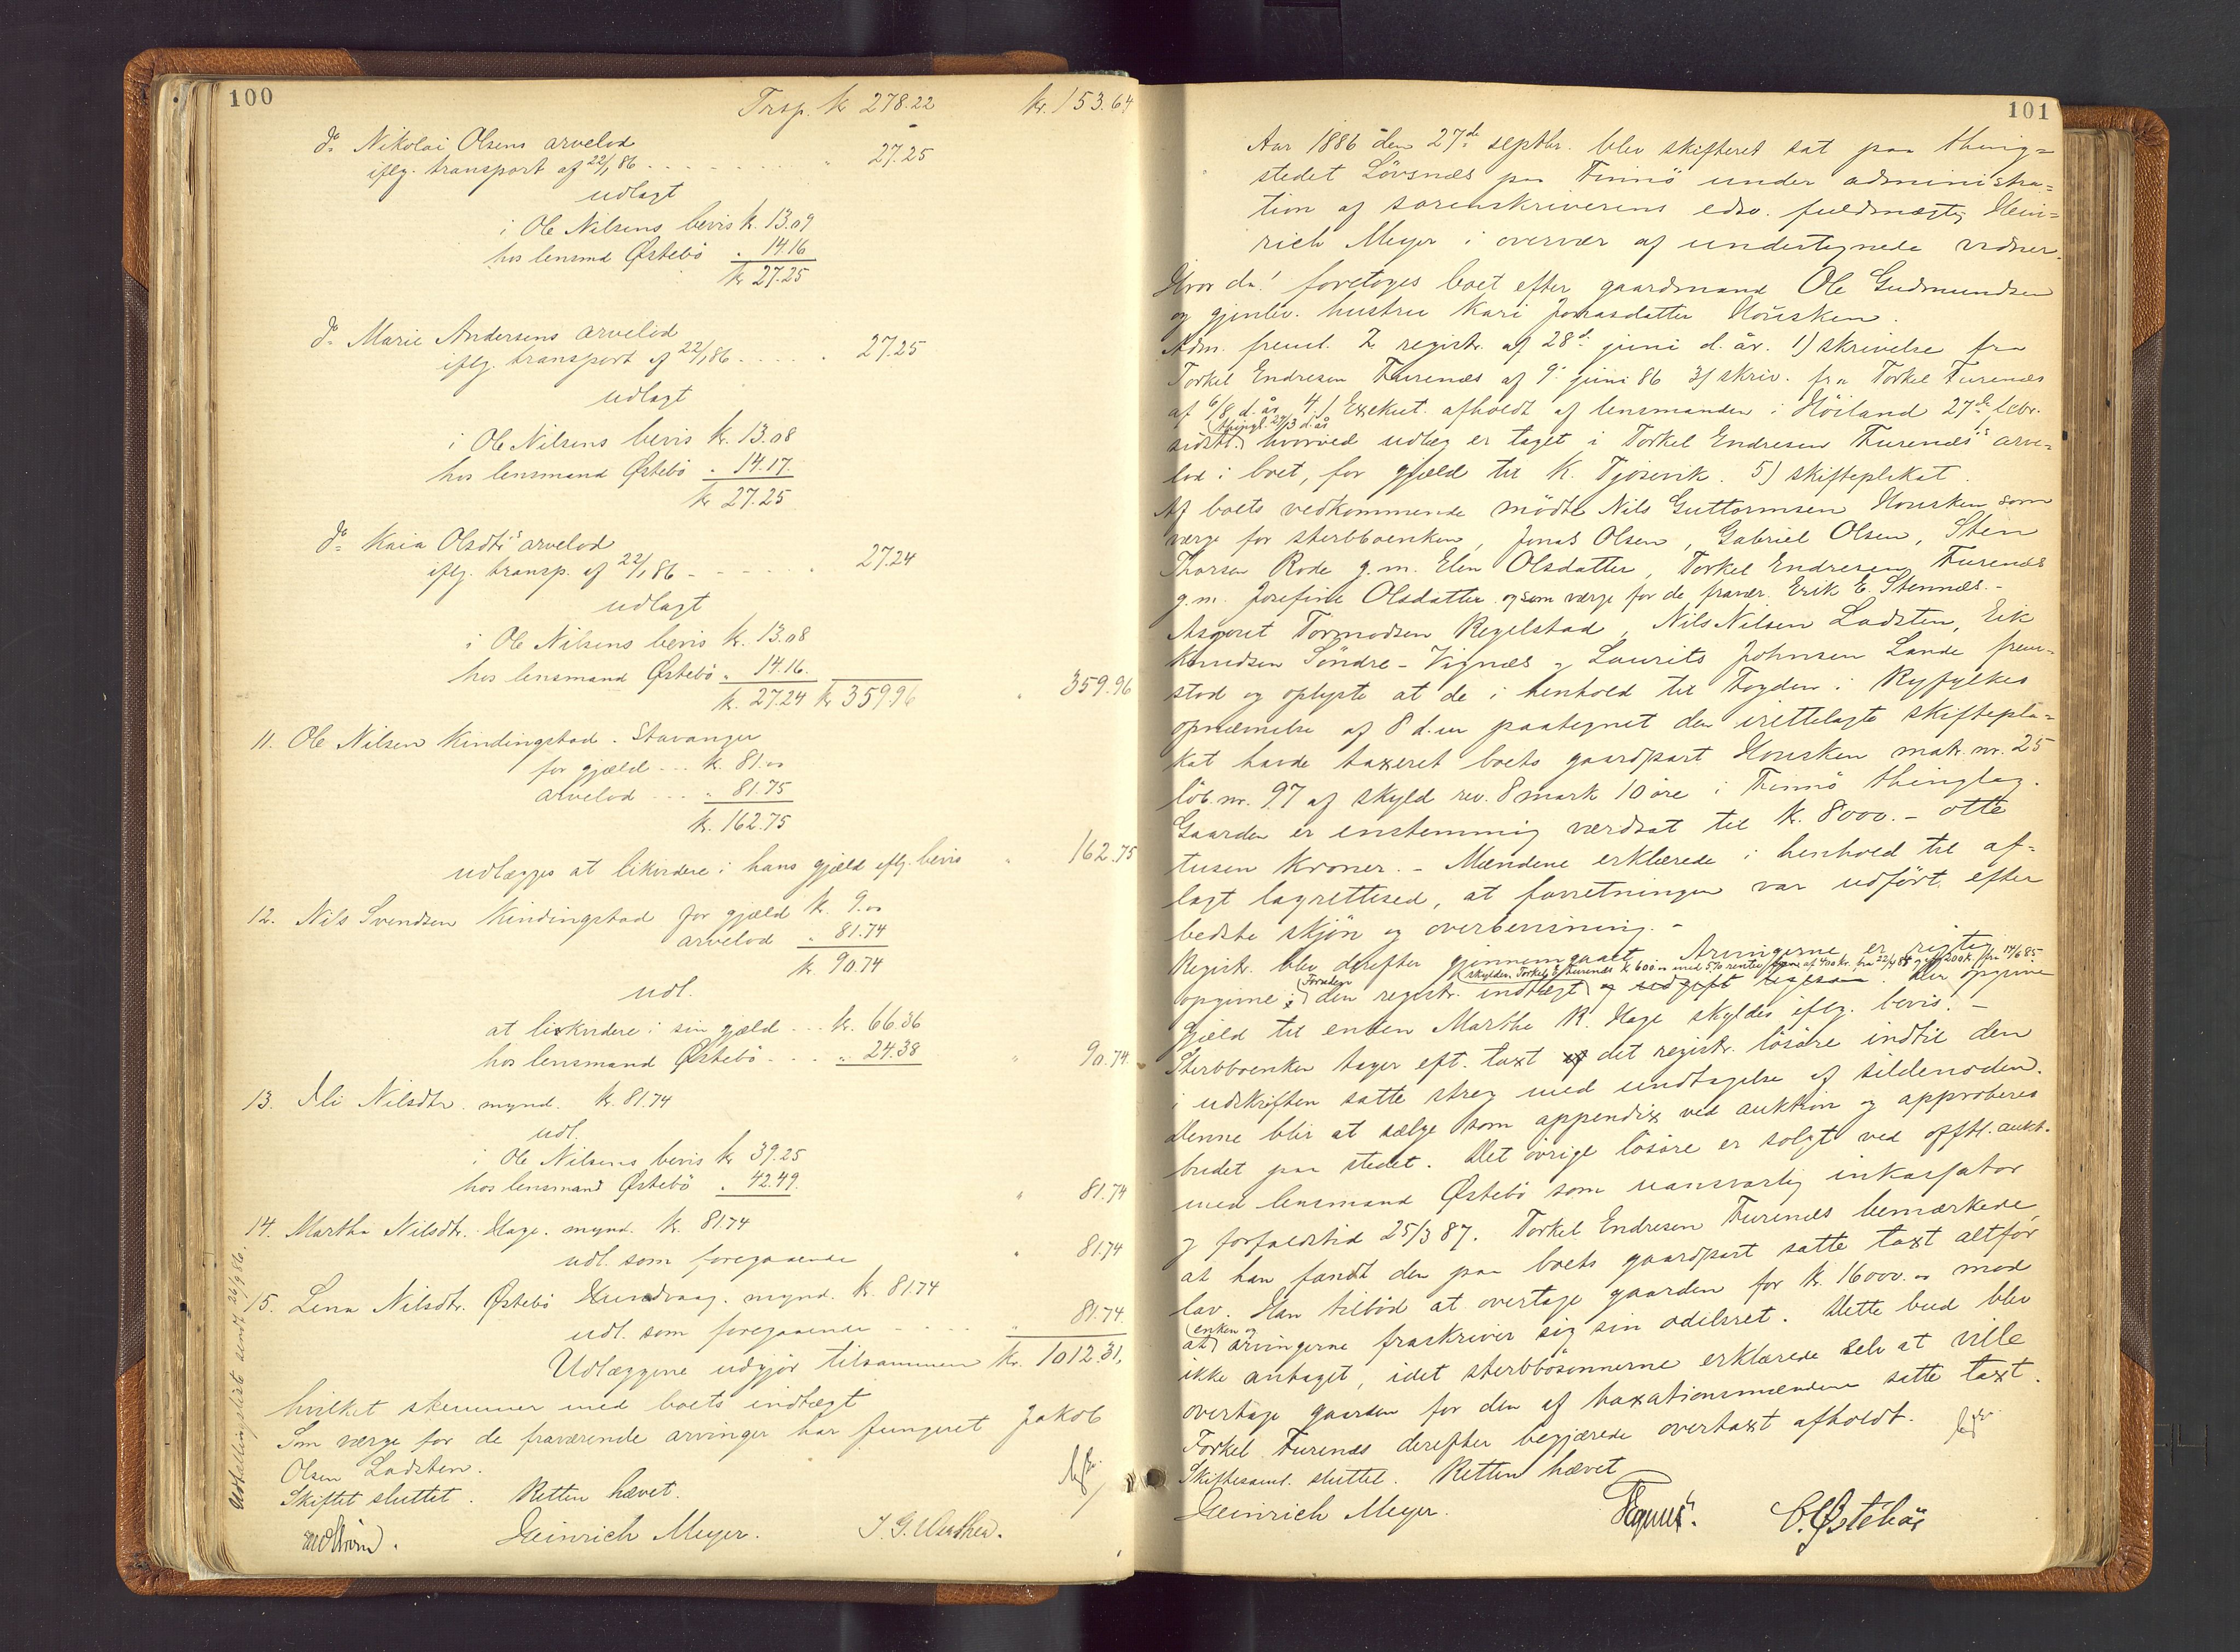 100
Trsp. kr 278.22 kr. 153.64
do. Nikolai Olsens arvelod
iflg. transport af 22/1 86 - - - - - " 27.25
udlagt
i Ole Nilsens bevis kr. 13.09
hos lensmd Østebö " 14.16
kr 27.25
do. Marie Andersens arvelod
iflg. transport af 22/1 86 - - - - " 27.25
udlagt
i Ole Nilsens bevis kr. 13.08
hos lensmand Østebö " 14.17.
kr 27.25
do. Kaia Olsdtr's arvelod
iflg. transp. af 22/1 86 - - - - " 27.24
udlagt
i Ole Nilsens bevis kr. 13.08
hos lensmand Østebö " 14.16.
kr. 27.24 kr 359.96 " 359.96
11. Ole Nilsen Kindingstad. Stavanger
for gjæld - - - kr. 81.00
arvelod - - - " 81.75
kr. 162.75
udlægges at likvidere i hans gjæld iflg. bevis " 162.75
12. Nils Svendsen Kindingstad for gjæld kr. 9.00
arvelod " 81.74
kr. 90.74
udl.
at likvidere i sin gjæld - - - kr. 66.36
hos lensmand Østebö - - - " 24.38 " 90.74.
13. Eli Nilsdtr. mynd. kr. 81.74
udl.
i Ole Nilsens bevis kr 39.25
hos lensmand Østebö " 42.49. " 81.74
14. Martha Nilsdtr. Hage. mynd. kr. 81.74
udl. som foregaaende " 81.74
15. Lena Nilsdtr. Østebö Hundvaag. mynd. kr. 81.74
udl. som foregaaende - - - - " 81.74.
Udlæggene udgjör tilsammen kr. 1012.31,
hvilket stemmer med boets indtægt
Som værge for de fraværende arvinger har fungeret Jakob
Olsen Ladsten.
Skiftet sluttet. Retten hævet.
Heinrich Meyer.
Udstillingsliste sendt 26/9 86.
101
Aar 1886 den 27de septbr. blev skifteret sat paa thing=
stedet Lövsnæs paa Finnö under administra=
tion af sorenskriverens edsv. fuldmægtig Hein=
rich Meyer i overvær af undertegnede vidner.
Hvor da! foretoges boet efter gaardmand Ole Gudmundsen
og gjenlev. hustru Kari Jonasdatter Housken.
Adm. freml. 2 registr. af 28de juni d. år. 1) skrivelse fra
Torkel Endresen Furenæs af 9. juni 86 3) skriv. fra Torkel Furenæs
af 6/8 d. år 4.) Exekut. afholdt af lensmanden i Höiland 27de febr.
sidstl. (thingl. 29/3 d. år) hvorved udlæg er taget i Torkel Endresen Furenæs's arve=
lod i boet, for gjæld til K. Tjösevik. 5) skifteplakat.
Af boets vedkommende mödte Nils Guttormsen Housken som
værge for sterbboenken, Jonas Olsen, Gabriel Olsen, Stein
Thorsen Rode g. m. Elen Olsdatter, Torkel Endresen Furenæs
g. m. Josefine Olsdatter og som værge for de fravær. Erik E. Stennæs. -
Asgout Tormodsen Regelstad, Nils Nilsen Ladsten, Eik
Knudsen Söndre-Vignæs og Laurits Johnsen Lande frem=
stod og oplyste at de i henhold til Fogden i Ryfylkes
opnævnelse af 8 d. m paategnet den irettelagte skiftepla=
kat havde taxeret boets gaardpart Housken matr. nr. 25
löb. nr. 97 af skyld rev. 8 mark 10 öre i Finnö thinglag.
Gaarden er enstemmig værdsat til kr. 8000. - otte
tusen kroner. - Mændene erklærede i henhold til af=
lagt lagrettesed, at forretningen var udfört efter
bedste skjön og overbevisning. -
Registr. blev derefter gjennemgaaet. Arvingerne er rigtig
opgivne; Foruden den registr. indtægt (skylder Torkel E Furenæs kr 600.00 med 5% rente af 400 kr. fra 22/4 84 og af 200 k. fra 14/6 85 og udgift . Den opgivne
Gjæld til enken Martha R. Hage skyldes iflg. bevis. -
Sterbboenken tager eft. taxt af det registr. lösöre indtil den
i udskriften satte streg med undtagelse af sildenoden.
Denne blir at sælge som appendix ved auktion og approberes
budet paa stedet. Det övrige lösöre er solgt ved offtl. aukt.
med lensmand Østebö som uansvarlig inkassator
og forfaldstid 25/3 87. Torkel Endresen Furenæs bemærkede,
at han fandt den paa boets gaardpart satte taxt altfor
lav. Han tilböd at overtage gaarden for kr. 16000.00 mod
at (enken og) arvingerne fraskriver sig sin odelsret. Dette bud blev
ikke antaget, idet sterbbosönnerne erklærede selv at ville
overtage gaarden for den af taxationsmændene satte taxt.
Torkel Furenæs derefter begjærede overtaxt afholdt.
Skiftesaml. sluttet. Retten hævet
Heinrich Meyer. C. Østebö